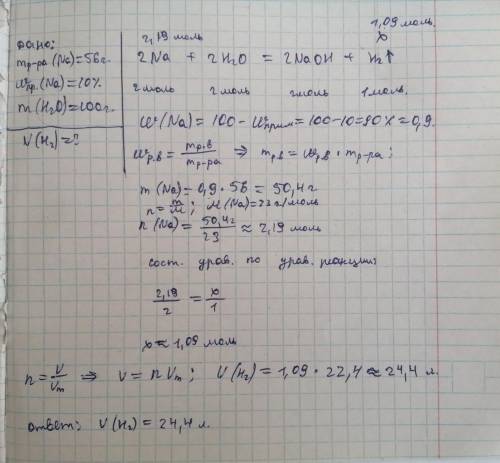 дано:
mр-ра (Na)=56г.
wпр. (Na)=10%
m (H2O)=100г.
V(H2)=?
2,19 моль
1,09 моль.
x
2Na + 2H2O = 2NaOH + H2↑
2 моль 2 моль 2 моль 1 моль.
w (Na) = 100 - wприм = 100-10=90% = 0,9.
wр.в = mр.в / mр-ра ⇒ mрв = wр.в · mр-ра;
m (Na) = 0,9 · 56 = 50,4 г
n = m/M ; M (Na)=23 г/моль
n (Na) = 50,4 г / 23 ≈ 2,19 моль
сост. урав. по урав. реакции:
2,19 / 2 = x / 1
x ≈ 1,09 моль
n = V/Vm ⇒ V = n Vm ; V (H2) = 1,09 · 22,4 ≈ 24,4 л.
ответ: V (H2) = 24,4 л.